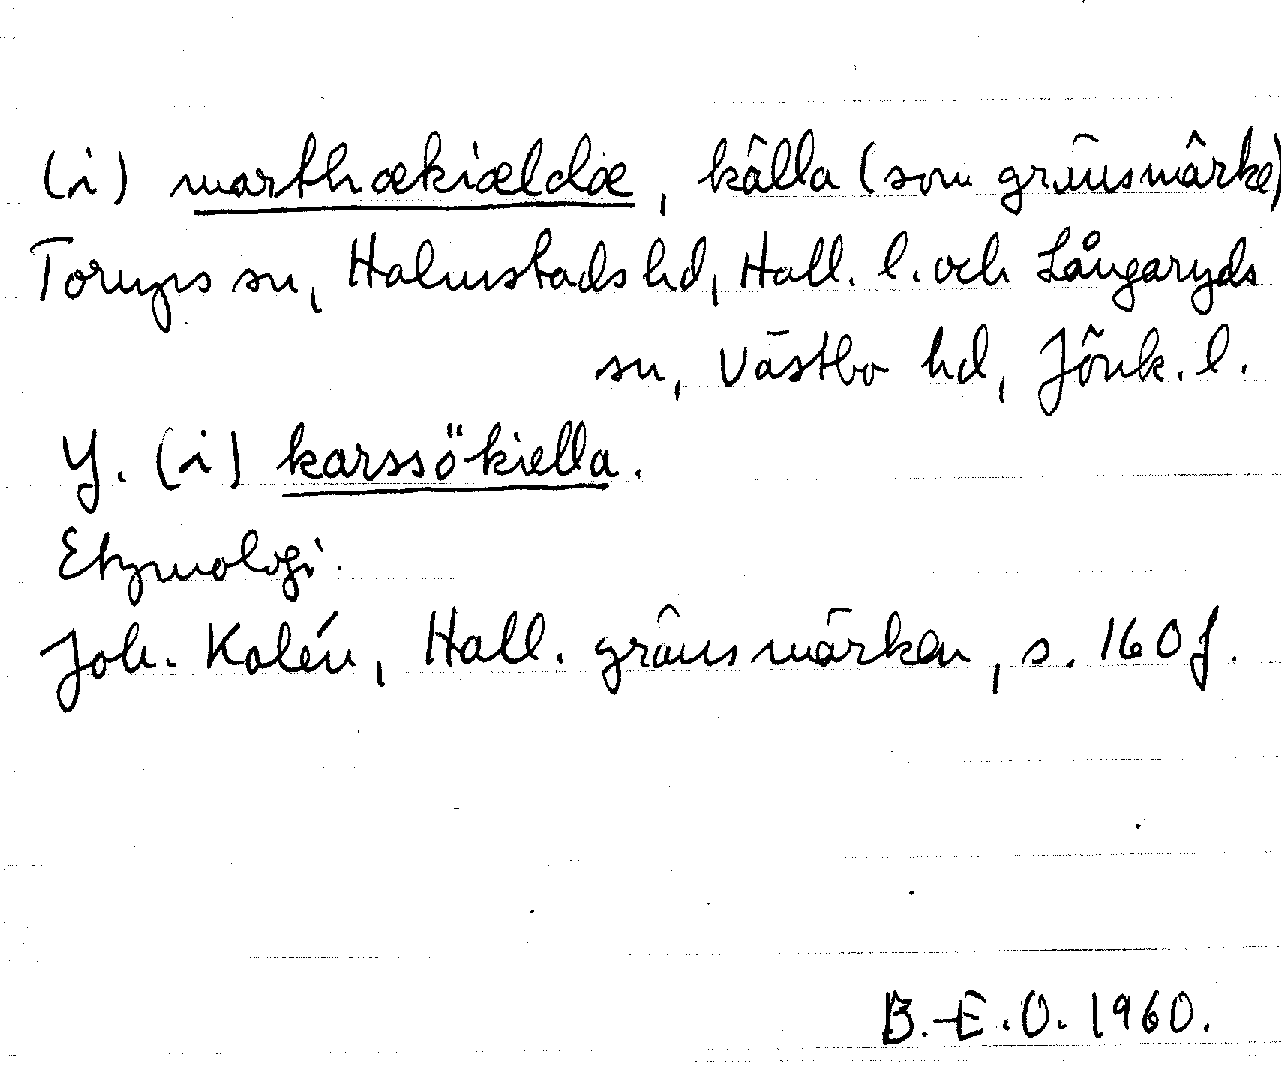 (i) marthækiældæ, källa (som gränsmärke)
Torups sn, Halmstads hd, Hall. l. och Långaryds
sn, Västbo hd, Jönk. l.
Y. (i) karssö-kiella.
Etymologi.
Joh. Kalén, Hall. gränsmärken, s. 160 f.
B.-E.O. 1960.